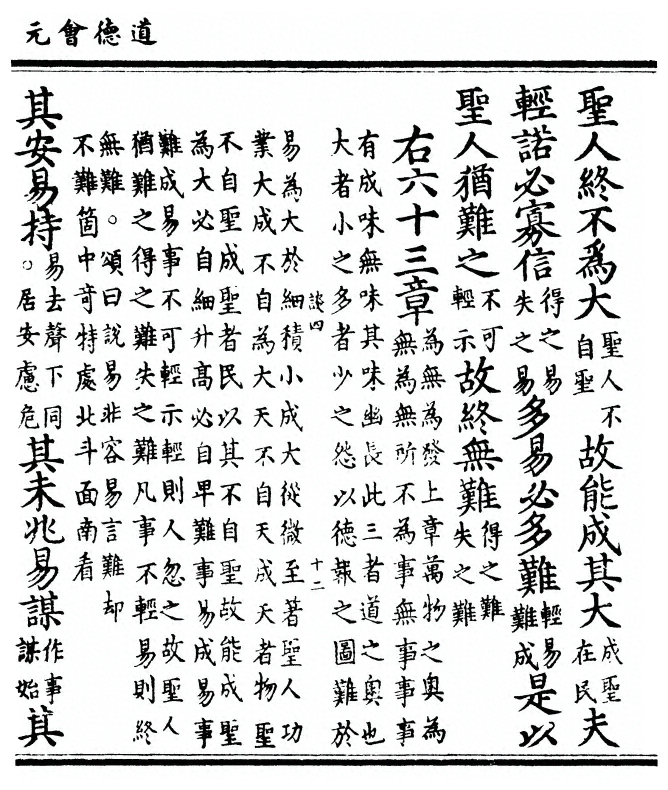 道德會元
聖人終不爲大聖人不自聖故能成其大成聖在民夫
輕諾必寡信得之易失之易多易必多難輕易難成是以
聖人猶難之不可輕示故終無難得之難失之難
右六十三章為無為發上章萬物之奥為
無為無所不為事無事事事
有成味無味其味幽長此三者道之奥也
大者小之多者少之怨以德報之圖難於
談四 十二
易為大於細積小成大從微至著聖人功
業大成不自為大天不自天成天者物聖
不自聖成聖者民以其不自聖故能成聖
為大必自細升髙必自卑難事易成易事
難成易事不可輕示輕則人忽之故聖人
猶難之得之難失之難凡事不輕易則終
無難。頌曰說易非容易言難却
不難箇中竒特處北斗面南看
其安易持。易去聲下同居安慮危其未兆易謀作事謀始其